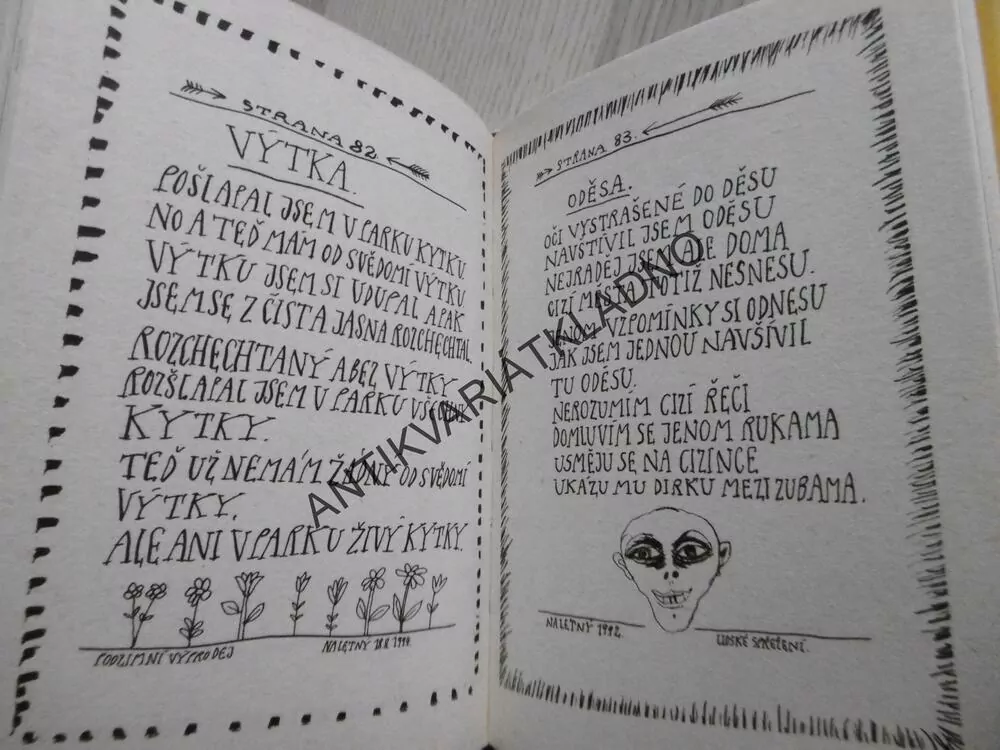 STRANA 82
VÝTKA.
POŠLAPAL JSEM V PARKU KYTKU
NO A TEĎ MÁM OD SVĚDOMÍ VÝTKU
VÝTKU JSEM SI UDUPAL APAK
JSEMSE Z ČISTA JASNA ROZCHECHTAL.
ROZCHECHTANÝ ABEZ VÝTKY
ROZŠLAPAL JSEM V PARKU
KYTKY.
TEĎ UŽ NEMÁM OD SVĚDOMÍ
VÝTKY.
ALE ANI V PARKU ŽIVÝ KYTKY.
PODZIMNÍ VÝPRODEJ
NALETNÝ
STRANA 83.
ODĚSA.
OČI VYSTRAŠENÉ DO DĚSU
NAVŠTÍVIL JSEM ODĚSU
NEJRADĚJ JSEM ALE DOMA
CIZÍ MĚSTA TOTIŽ NESNESU.
JENOM VZPOMÍNKY SI ODNESU
JAK JSEM JEDNOU NAVŠÍVIL
TU ODÉSU.
NEROZUMÍM CIZÍ ŘEČI
DOMLUVÍM SE JENOM RUKAMA
USMĚJU SE NA CIZINCE
UKÁZU MU DIRKU MEZI ZUBAMA.
NALETNÝ 1992.
LIDSKÉ SPŘEŽENÍ.
ANTIKVARIÁTKLADNO